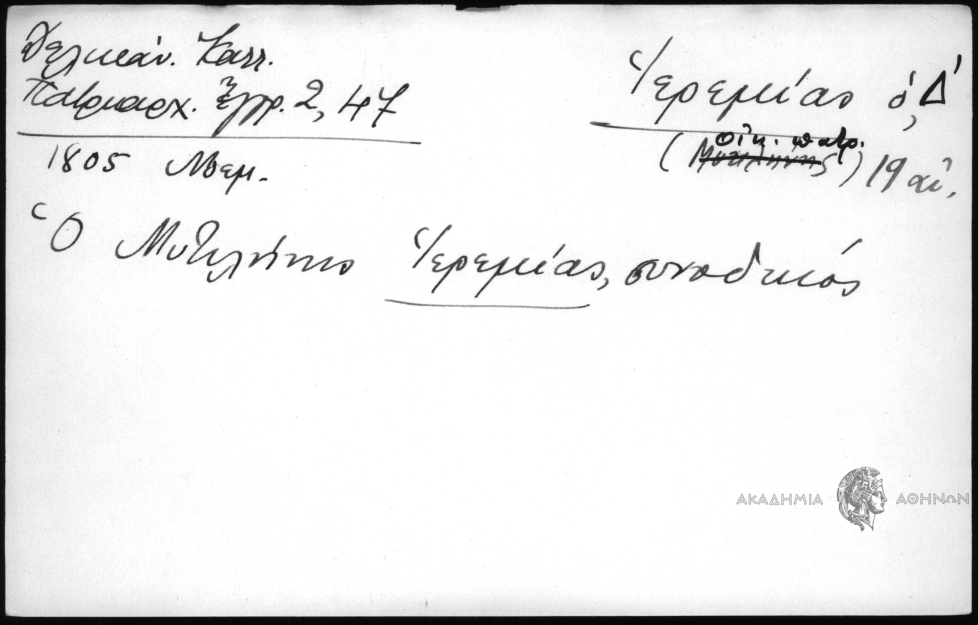 Δελικάν. Καλλ.
Πατριαρχ. Ἔγγρ. 2, 47
Ἱερεμίας ὁ Δ΄
οἰκ. πατρ.
(Μυτιλήνης) 19 αἰ.
1805
Ὁ Μυτιλήνης Ἱερεμίας, συνοδικός
ΑΚΑΔΗΜΙΑ ΑΘΗΝΩΝ